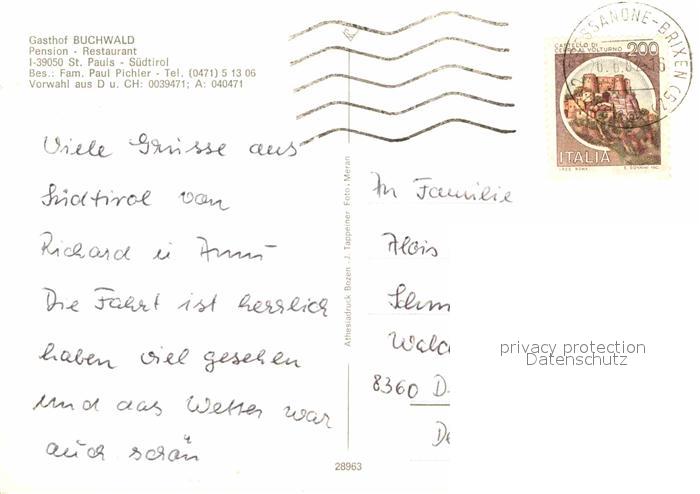 Gasthof BUCHWALD
Pension - Restaurant
I-39050 St. Pauls - Südtirol
Bes.: Fam. Paul Pichler - Tel. (0471) 5 13 06
Vorwahl aus D u. CH: 0039471; A: 040471
Viele Grüsse aus
Südtirol von
Richard u
Die Fahrt ist herrlich
haben viel gesehen
und das Wetter war
auch schön
Athesiadruck Bozen - J. Tappeiner Foto - Meran
28963
BRESSANONE-BRIXEN (BZ)
CASTELLO DI
CERRO AL VOLTURNO
200
ITALIA
An Familie
Alois
Schm
Wald
8360 D
De
privacy protection
Datenschutz